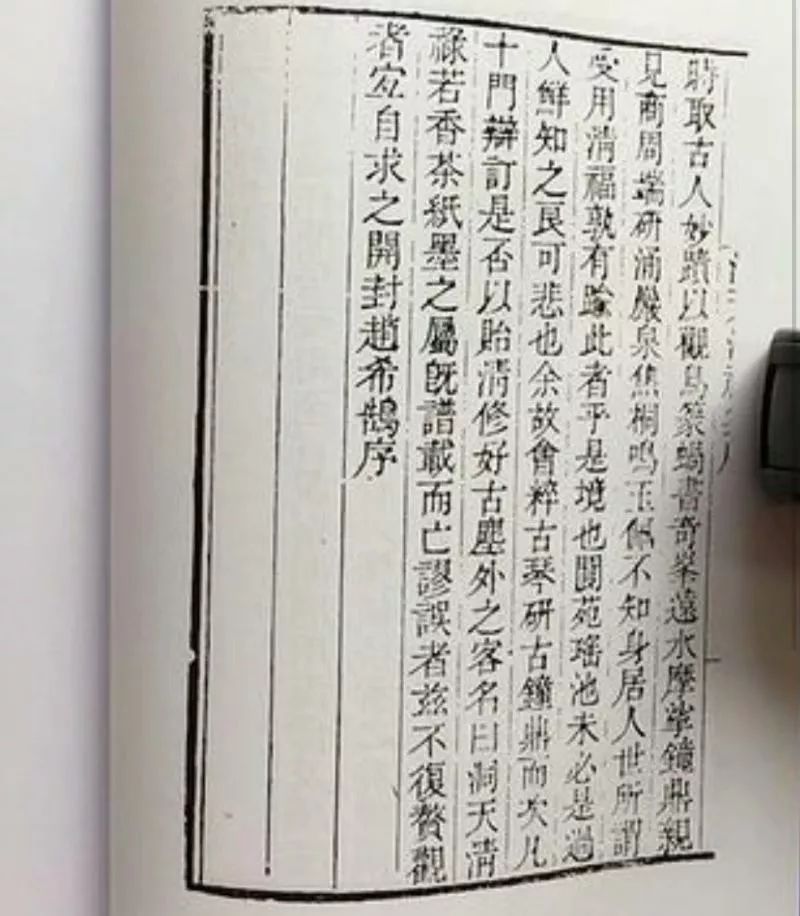 時取古人妙蹟以觀鳥篆蝸書奇峯遠水摩挲鐘鼎親
見商周端研涌巖泉焦桐鳴玉佩不知身居人世所謂
受用淸福孰有踰此者乎是境也閬苑瑤池未必是過
人鮮知之良可悲也余故會粹古琴研古鐘鼎而次凡
十門辯訂是否以貽淸修好古塵外之客名曰洞天淸
祿若香茶紙墨之屬旣譜載而亡謬誤者兹不復贅觀
者宜自求之開封趙希鵠序